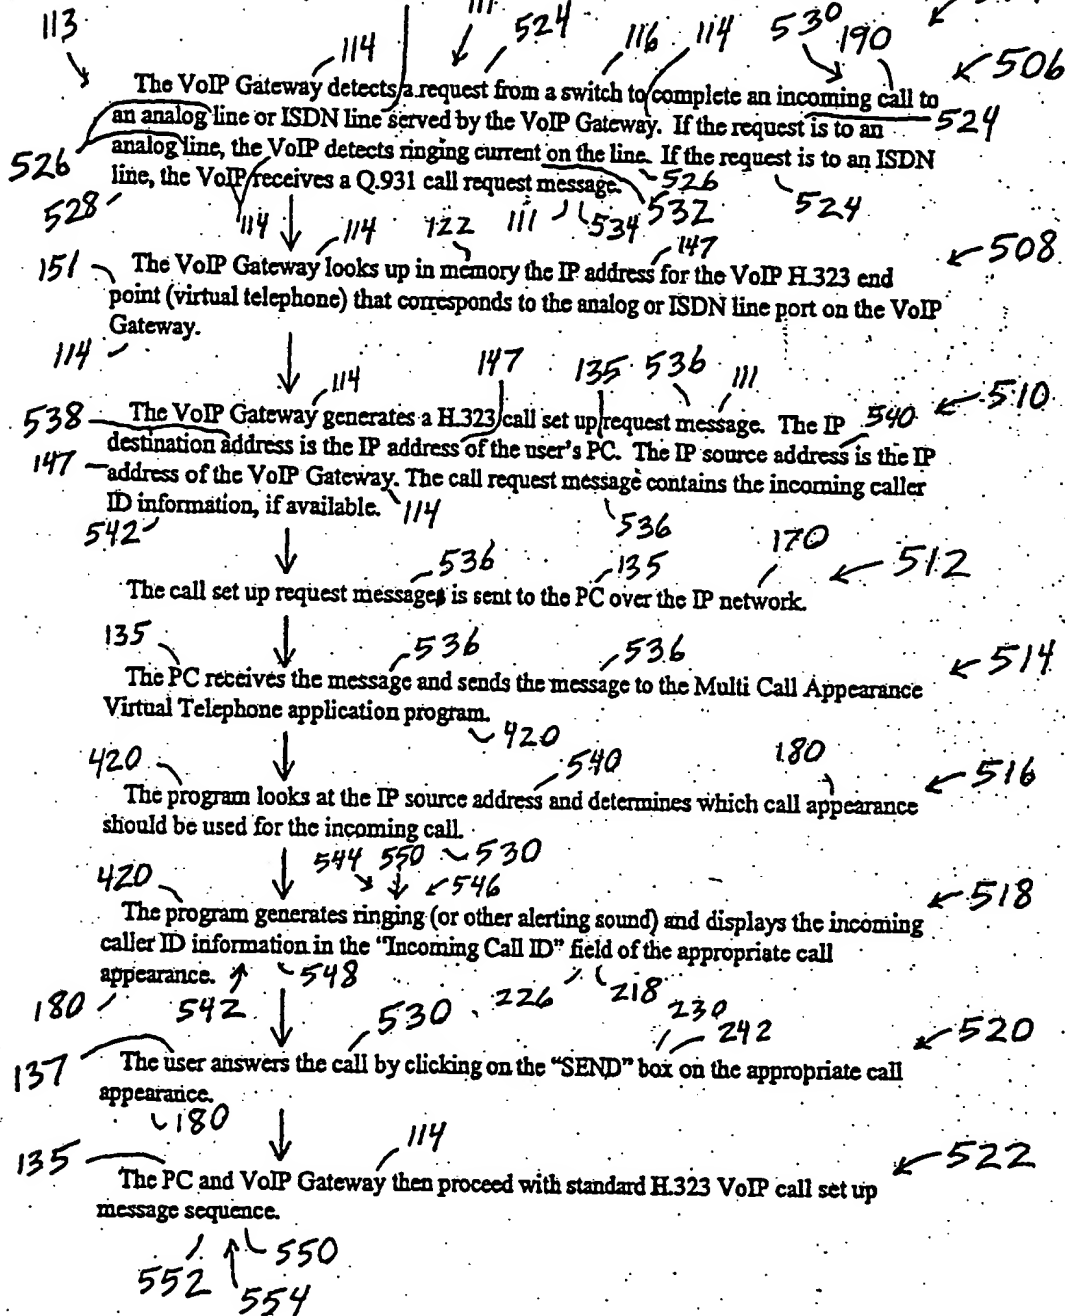 113 111 524 116 114 530 190
114 506
The VoIP Gateway detects a request from a switch to complete an incoming call to
an analog line or ISDN line served by the VoIP Gateway. If the request is to an 524
analog line, the VoIP detects ringing current on the line. If the request is to an ISDN
526 line, the VoIP receives a Q.931 call request message. 526
528 114 114 122 111 534 532 524
147 508
151 The VoIP Gateway looks up in memory the IP address for the VoIP H.323 end
point (virtual telephone) that corresponds to the analog or ISDN line port on the VoIP
Gateway.
114 147 135 536 111
114 510
538 The VoIP Gateway generates a H.323 call set up request message. The IP 540
destination address is the IP address of the user's PC. The IP source address is the IP
147 address of the VoIP Gateway. The call request message contains the incoming caller
ID information, if available. 114 536
542 170
536 135 512
The call set up request messages is sent to the PC over the IP network.
135 536 536 514
The PC receives the message and sends the message to the Multi Call Appearance
Virtual Telephone application program.
420
420 540 180 516
The program looks at the IP source address and determines which call appearance
should be used for the incoming call.
544 550 530
420 546 518
The program generates ringing (or other alerting sound) and displays the incoming
caller ID information in the "Incoming Call ID" field of the appropriate call
appearance. 548
180 542 530 226 218 230
242 520
137 The user answers the call by clicking on the "SEND" box on the appropriate call
appearance.
180 114
135 522
The PC and VoIP Gateway then proceed with standard H.323 VoIP call set up
message sequence.
552 550
554